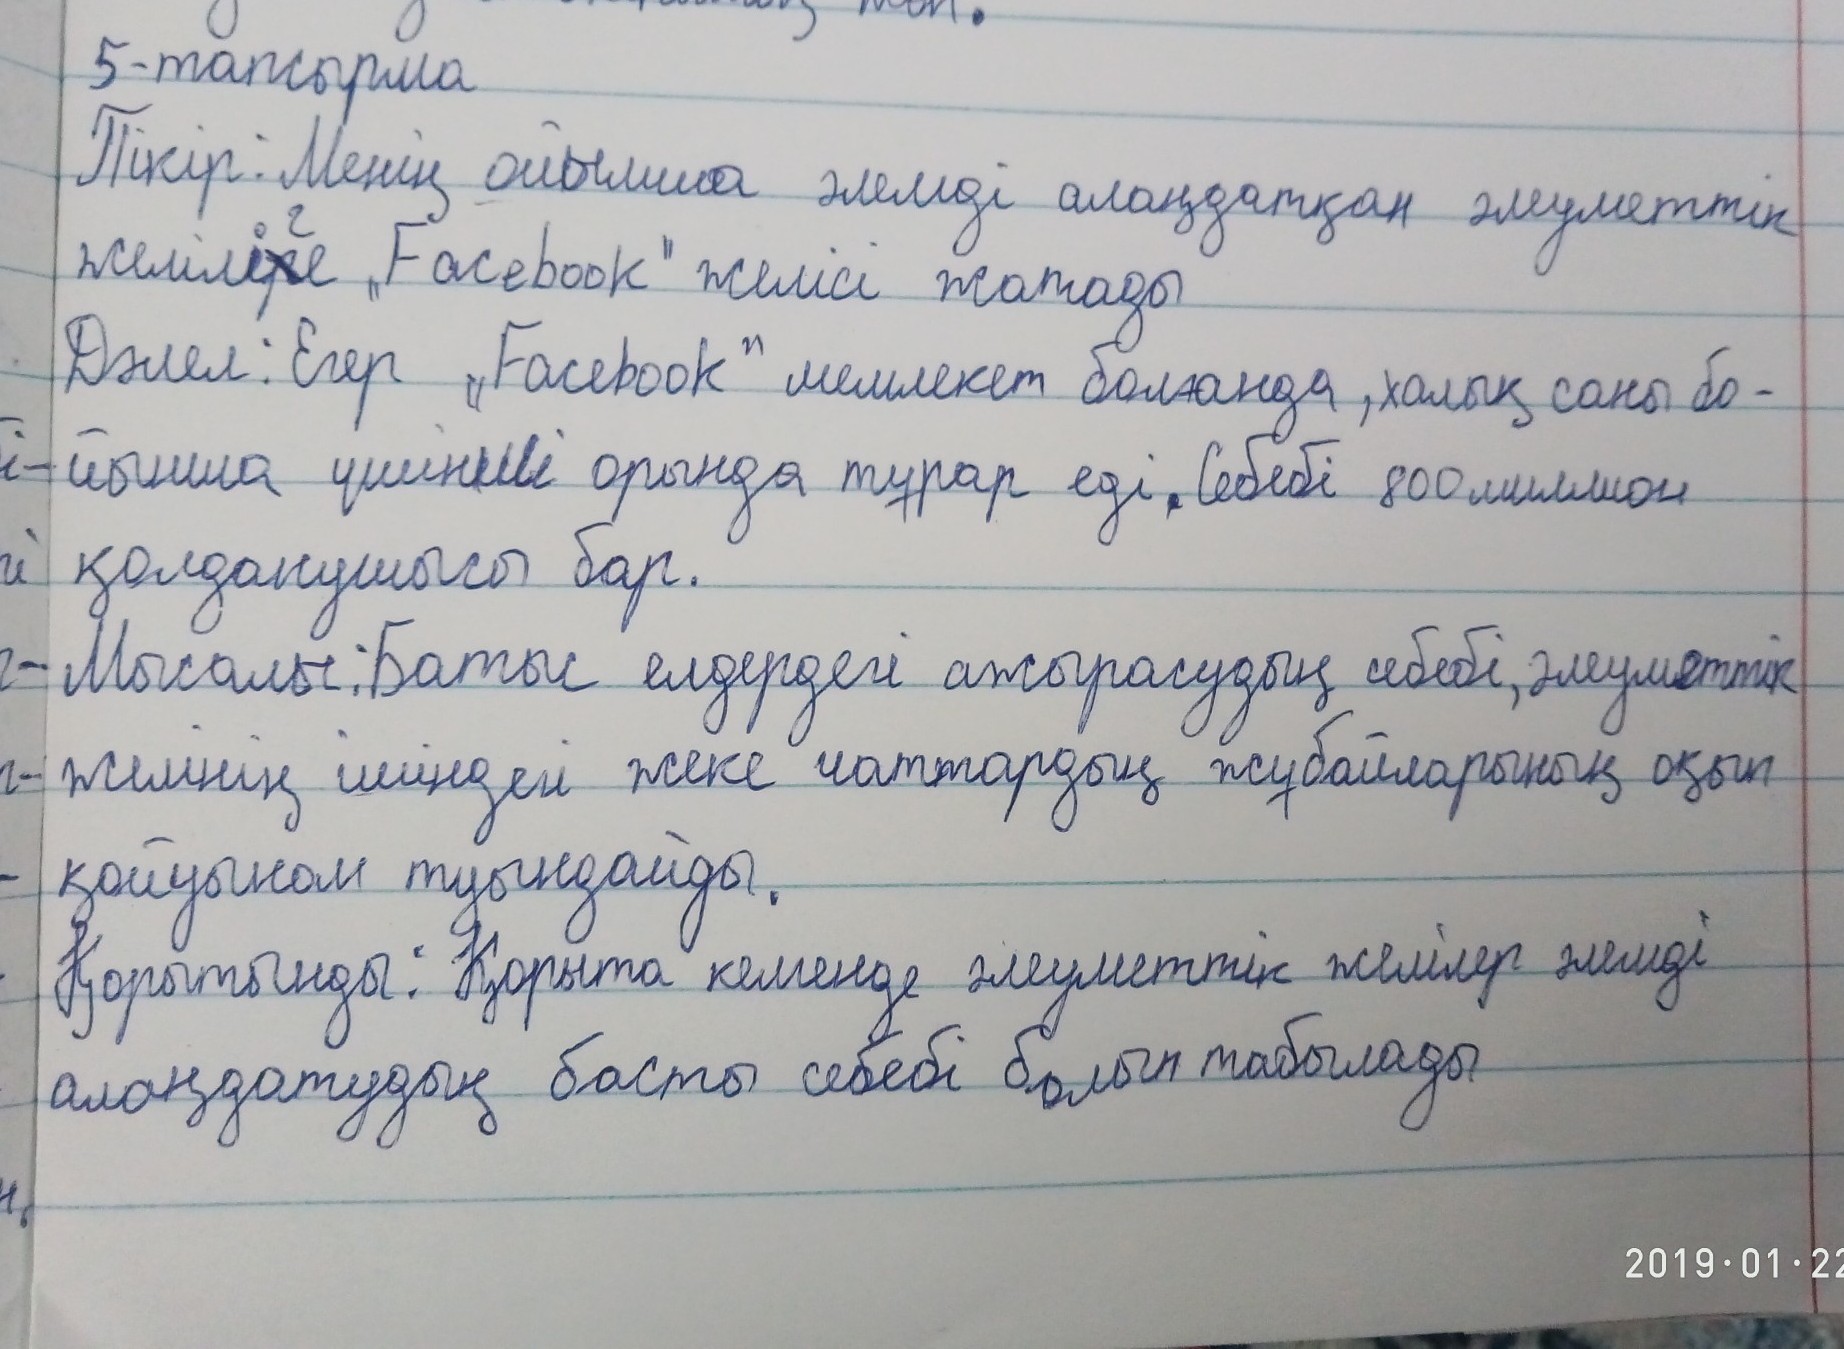 5-тапсырма
Пікір: Менің ойымша әлемді алаңдатқан әлеуметтік
желіге „Facebook" желісі жатады
Дәлел: Егер „Facebook" мемлекет болғанда, халық саны бо-
йынша үшінші орында тұрар еді. Себебі 800 миллион
қолданушысы бар.
Мысалы: Батыс елдердегі ажырасудың себебі, әлеуметтік
желінің ішіндегі жеке чаттардың жұбайларының оқып
қойуынан туындайды.
Қорытынды: Қорыта келгенде әлеуметтік желілер әлемді
алаңдатудың басты себебі болып табылады
2019.01.22